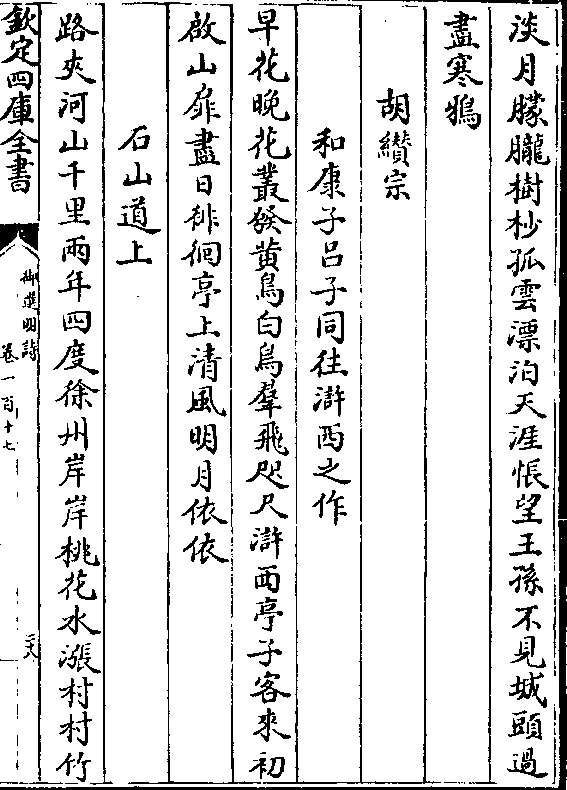 淡月朦朧樹杪孤雲漂泊天涯悵望王孫不見城頭過
盡寒鴉
胡纘宗
和康子呂子同往滸西之作
早花晚花叢發黄鳥白鳥羣飛咫尺滸西亭子客來初
啟山扉盡日徘徊亭上清風明月依依
石山道上
路夾河山千里兩年四度徐州岸岸桃花水漲村村竹
欽定四庫全書
御選明詩
卷一百十七
三八